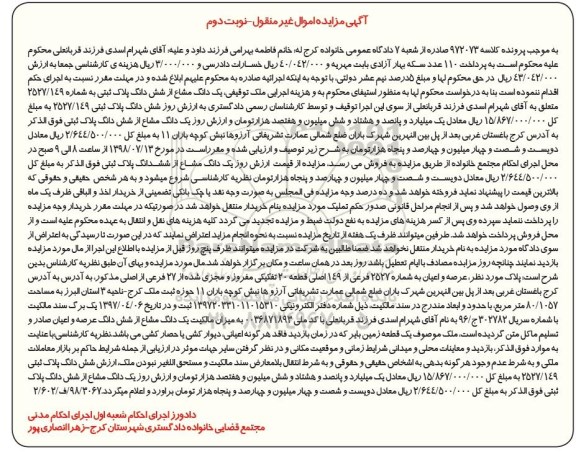 آگهی مزایده اموال غیر منقول-نوبت دوم
به موجب پرونده کلاسه ۹۷۲۰۷۳ صادره از شعبه ۷ دادگاه عمومی خانواده کرج له: خانم فاطمه بهرامی فرزند داود و علیه: آقای شهرام اسدی فرزند قربانعلی محکوم
علیه محکوم است به پرداخت ۱۱۰ عدد سکه بهار آزادی بابت مهریه و ۴۰/۰۴۲/۰۰۰ ریال خسارات دادرسی و ۳/۰۰۰/۰۰۰ ریال هزینه ی کارشناسی جمعا به ارزش
۴۳/۰۴۲/۰۰۰ ریال در حق محکوم لها و مبلغ ۵درصد نیم عشر دولتی، با توجه به اینکه اجرائیه صادره به محکوم علیهم ابلاغ شده و در مهلت مقرر نسبت به اجرای حکم
اقدام ننموده است بنا به درخواست محکوم لها به منظور استیفای محکوم به و هزینه اجرایی ملک توقیفی، یک دانگ مشاع از شش دانگ پلاک ثبتی به شماره ۲۵۲۷/۱۴۹
متعلق به آقای شهرام اسدی فرزند قربانعلی از سوی این اجرا توقیف و توسط کارشناسان رسمی دادگستری به ارزش روز شش دانگ پلاک ثبتی ۲۵۲۷/۱۴۹ به مبلغ کل
۱۵/۸۶۷/۰۰۰/۰۰۰ ریال معادل یک میلیارد و پانصد و هشتاد و شش میلیون و هفتصد هزارتومان و ارزش روز یک دانگ مشاع از شش دانگ پلاک ثبتی فوق الذکر
به آدرس کرج باغستان غربی بعد از پل بین النهرین شهرک باران ضلع شمالی عمارت تشریفاتی آرزوها نبش کوچه باران ۱۱ به مبلغ کل ۲/۶۴۴/۵۰۰/۰۰۰ ریال معادل
دویست و شصت و چهار میلیون و چهارصد و پنجاه هزارتومان به شرح زیر توصیف و ارزیابی شده و مقرر است در مورخ ۱۳۹۸/۰۷/۱۳ از ساعت ۸ الی ۹ صبح در
محل اجرای احکام مجتمع خانواده از طریق مزایده به فروش می رسد. مزایده از قیمت ارزش روز یک دانگ مشاع از ششدانگ پلاک ثبتی فوق الذکر به مبلغ کل
۲/۶۴۴/۵۰۰/۰۰۰ ریال معادل دویست و شصت و چهار میلیون و چهارصد و پنجاه هزارتومان نظریه کارشناسی شروع میشود و به هر شخص حقیقی و حقوقی که
بالاترین قیمت را پیشنهاد نماید فروخته خواهد شد و ده درصد وجه مزایده فی المجلس به صورت وجه نقد یا چک بانکی تضمینی از خریدار اخذ و الباقی ظرف یک ماه
از وی وصول خواهد شد و پس از انجام مراحل قانونی صدور حکم تملیک مورد مزایده بنام خریدار منتقل خواهد شد در صورتیکه در مهلت مقرر خریدار وجه مزایده
را پرداخت ننماید سپرده وی پس از کسر هزینه های مزایده به نفع دولت ضبط و مزایده تجدید می گردد کلیه هزینه های نقل و انتقال به عهده محکوم علیه است و از
محل فروش پرداخت خواهد شد. طرفین میتوانند ظرف یک هفته از تاریخ مزایده نسبت به نحوه انجام مزاید اعتراض نمایند که در این صورت تا رسیدگی به اعتراض از
سوی دادگاه مورد مزایده به نام خریدار منتقل نخواهد شد. ضمنا طالبین به شرکت در مزایده میتوانند ظرف پنج روز قبل از مزایده با اطلاع این اجرا از مال مورد مزایده
بازدید نمایند چنانچه روز مزایده مصادف با ایام تعطیل باشد روز بعد در همان ساعت و مکان برگزار خواهد شد. مال مورد مزایده و بهای آن طبق نظریه کارشناس بدین
شرح است: پلاک مورد نظر، عرصه و اعیان به شماره ۲۵۲۷ فرعی از ۱۴۹ اصلی قطعه ۲۰ تفکیکی مفروز و مجزی شده از ۲۷ فرعی از اصلی مذکور، به آدرس به آدرس
کرج باغستان غربی بعد از پل بین النهرین شهرک باران ضلع شمالی عمارت تشریفاتی آرزوها نبش کوچه باران ۱۱ حوزه ثبت ملک کرج-ناحیه ۳ استان البرز به مساحت
۸۰/۱۰۵۷ متر مربع، با حدود و ابعاد مندرج در سند مالکیت ذیل شماره دفتر الکترونیکی ۱۳۹۷۲۰۳۳۱۰۱۱۰۱۵۳۱۰ ثبت و در تاریخ ۱۳۹۷/۰۴/۰۶ یک برگ سند مالکیت
با شماره سریال ۳۰۲۲۸۴ ج/۹۶ به نام آقای شهرام اسدی فرزند قربانعلی با کد ملی ۰۰۳۶۸۷۱۸۹۳ به میزان مالکیت یک دانگ مشاع از شش دانگ عرصه و اعیان صادر و
تسلیم مالک متن گردیده است. ملک موصوف یک قطعه زمین بایر که در زمان بازدید فاقد هر گونه اعیانی، دیوار کشی یا حصار کشی می باشد. نظریه کارشناسی:با عنایت
به موارد فوق الذکر، بازدید و معاینات محلی و میدانی شرایط زمانی و موقعیت مکانی و در نظر گرفتن سایر جهات موثر در ارزیابی از جمله شرایط حاکم بر بازار معاملات
ملکی و به شرط عدم وجود هرگونه بدهی به اشخاص حقیقی و حقوقی و به شرط انتقال بلامعارض سند مالکیت و مستحق اللغیر نبودن ملک، ارزش شش دانگ پلاک ثبتی
۲۵۲۷/۱۴۹ به مبلغ کل ۱۵/۸۶۷/۰۰۰/۰۰۰ ریال معادل یک میلیارد و پانصد و هشتاد و شش میلیون و هفتصد هزار تومان و ارزش روز یک دانگ مشاع از شش دانگ پلاک ثبتی
فوق الذکر به مبلغ کل ۲/۶۴۴/۵۰۰/۰۰۰ ریال معادل دویست و شصت و چهار میلیون و چهارصد و پنجاه هزار تومان برآورد و اعلام میگردد.۹۸/۳۰۶۷/ف ۲/۶۰۲
دادورز اجرای احکام شعبه اول اجرای احکام مدنی
مجتمع قضایی خانواده دادگستری شهرستان کرج-زهرا انصاری پور